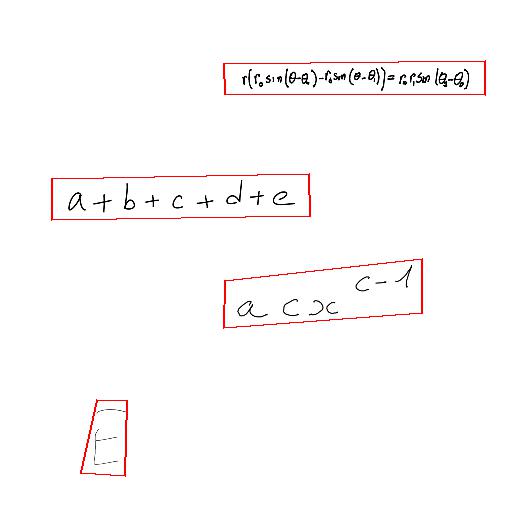 r(r₀sin(θ-θ₀)-r₀sin(θ-θ₁))=r₀r₁sin(θ₁-θ₀)
a+b+c+d+e
acx^{c-1}
E